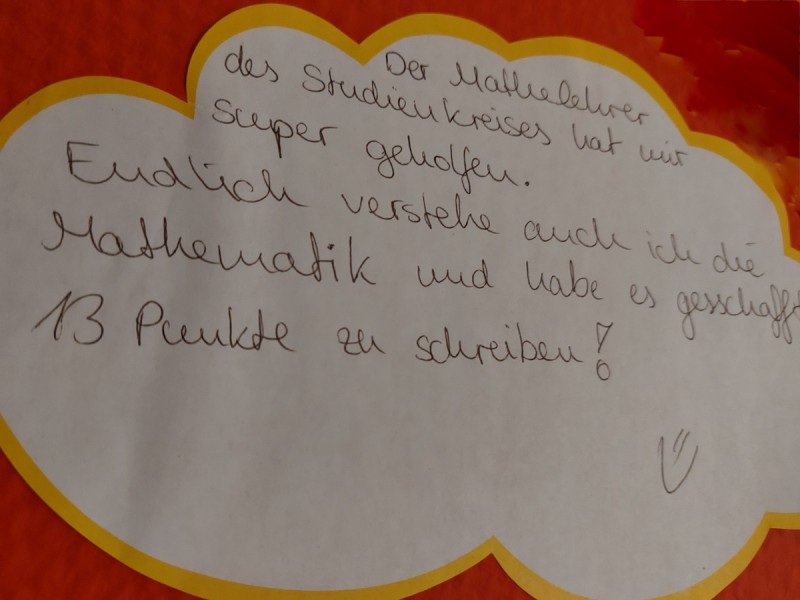 Der Mathelehrer
des Studienkreises hat mir
super geholfen.
Endlich verstehe auch ich die
Mathematik und habe es gesschafft
13 Punkte zu schreiben!